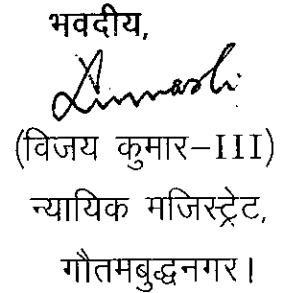 भवदीय,
(विजय कुमार-III)
न्यायिक मजिस्ट्रेट,
गौतमबुद्धनगर।